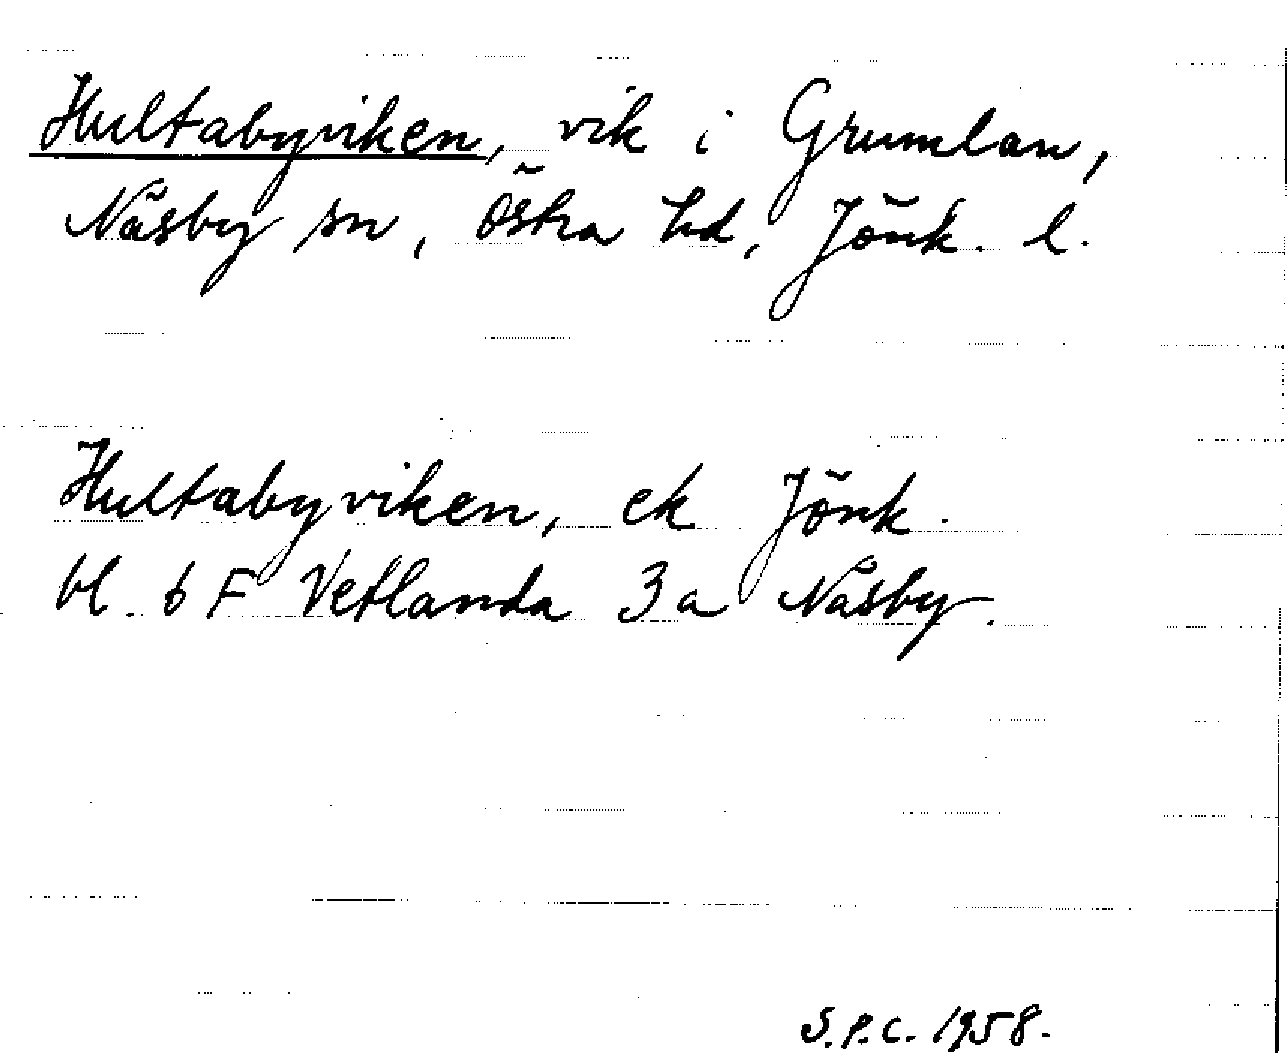 Hultabyviken, vik i Grumlan,
Näsby sn, Östra hd, Jönk. l.
Hultabyviken, ek Jönk.
bl. 6 F Vetlanda 3a Näsby.
S.P.C. 1958.